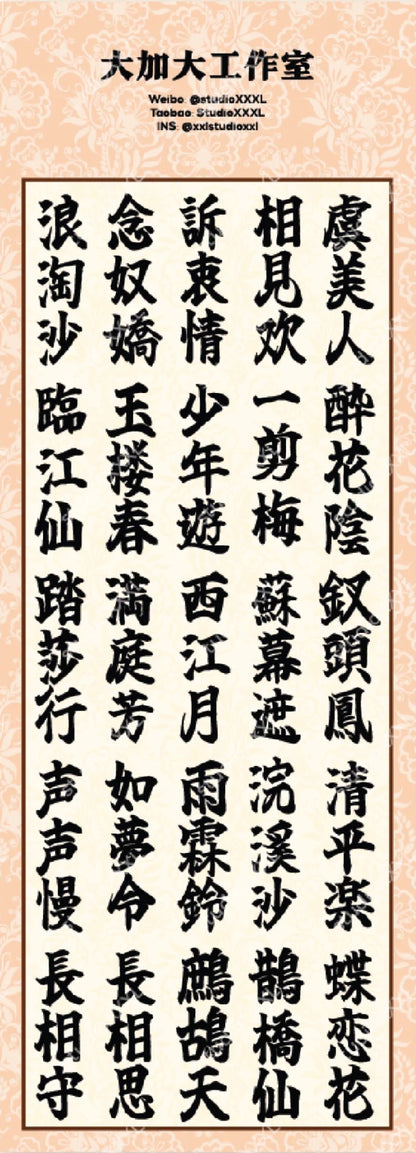 大加大工作室
Weibo: @studioXXXL
Taobao: StudioXXXL
INS: @xxlstudioxxl
虞美人 酔花陰 釵頭鳳 清平楽 蝶恋花
相見欢 一剪梅 蘇幕遮 浣溪沙 鵲橋仙
訴衷情 少年遊 西江月 雨霖鈴 鷓鴣天
念奴嬌 玉楼春 満庭芳 如夢令 長相思
浪淘沙 臨江仙 踏莎行 声声慢 長相守